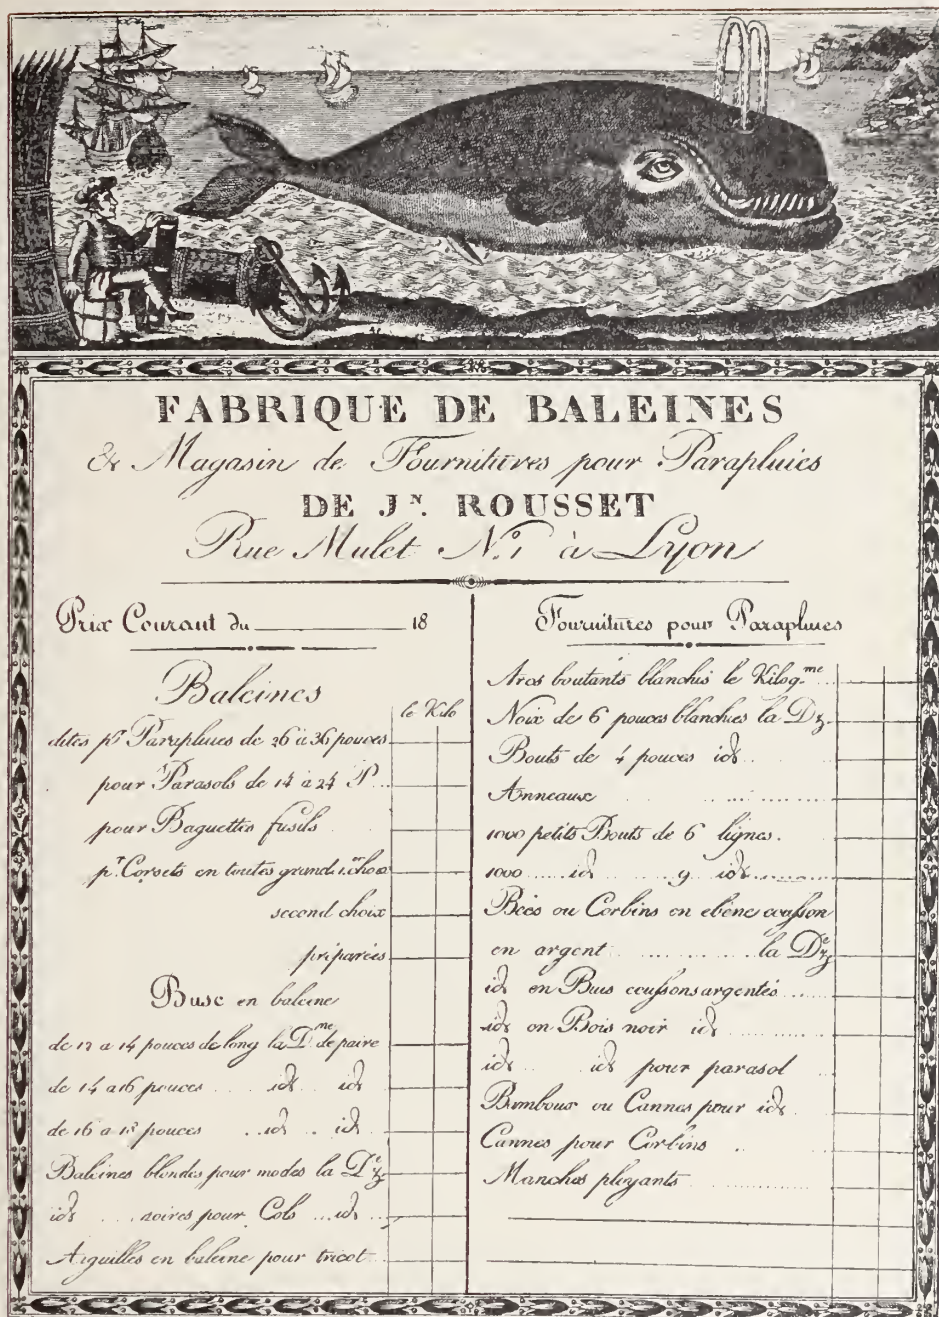 FABRIQUE DE BALEINES
& Magasin de Fournitures pour Parapluies
DE Jn. ROUSSET
Rue Mulet No. 1 à Lyon
Prix Courant du 18
Baleines
le Kilo
dites pr Parapluies de 26 à 36 pouces
pour Parasols de 14 à 24 P.
pour Baguettes fusils
pr. Corsets en toutes grandr. 1er choix
second choix
préparées
Busc en baleine
de 12 a 14 pouces de long la Dme de paire
de 14 a 16 pouces id id
de 16 a 18 pouces id id
Baleines blondes pour modes la Dze
id noires pour Cols id
Aiguilles en baleine pour tricot
Fournitures pour Parapluies
Arcs boutants blanchis le Kilogme
Noix de 6 pouces blanchies la Dz.
Bouts de 4 pouces id
Anneaux
1000 petits Bouts de 6 lignes.
1000 id 9 id
Becs ou Corbins en ebène ecusson
en argent la Dze
id en Buis ecussons argentés
id en Bois noir id
id id pour parasol
Bamboux ou Cannes pour id
Cannes pour Corbins
Manches ployants